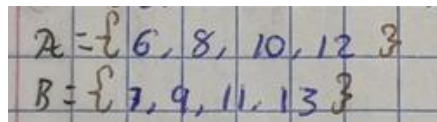 A = { 6, 8, 10, 12 }
B = { 7, 9, 11, 13 }